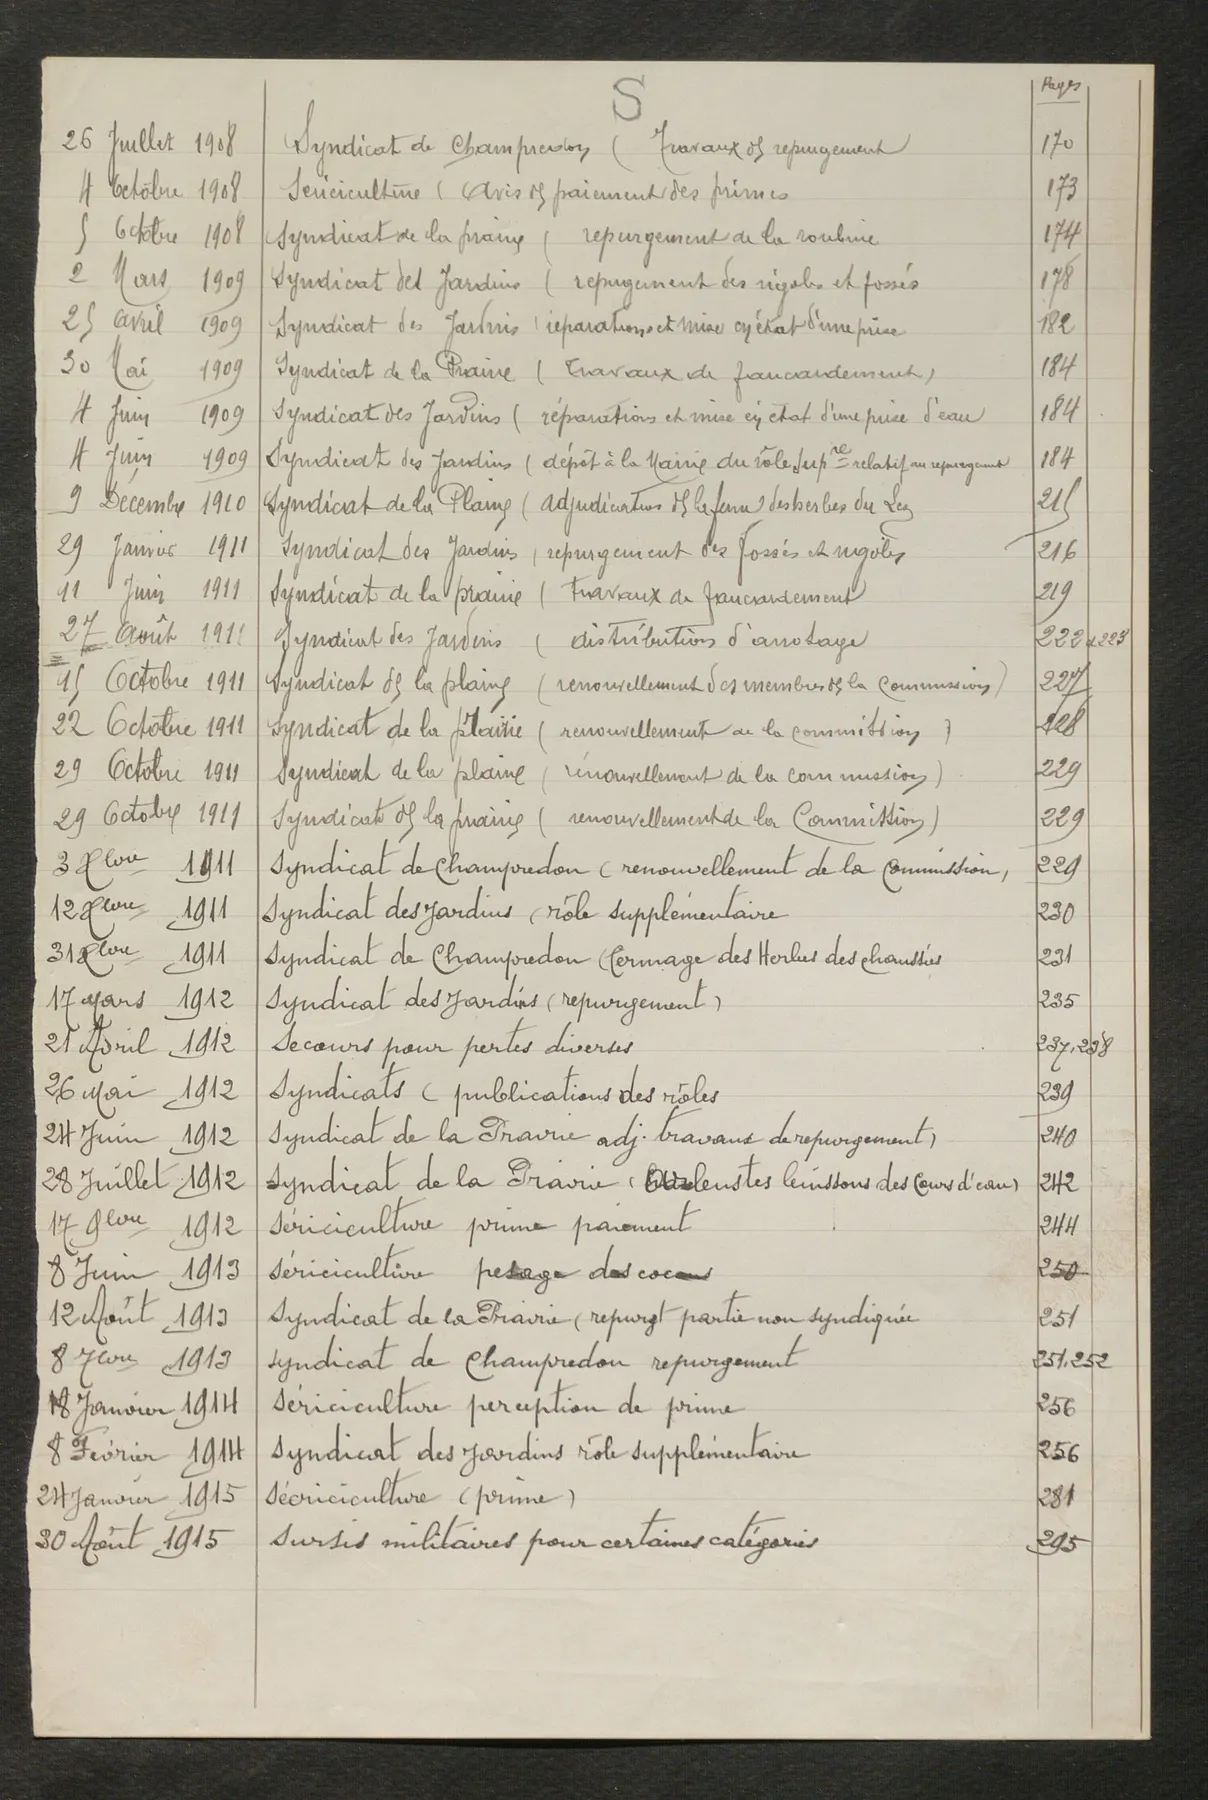 S
Pages
26 Juillet 1908 Syndicat de Champredon ( Travaux de repurgement 170
4 Octobre 1908 Sériciculture ( Avis de paiement des primes 173
5 Octobre 1908 Syndicat de la prairie ( repurgement de la roubine 174
2 Mars 1909 Syndicat des Jardins ( repurgement des rigoles et fossés 178
25 Avril 1909 Syndicat des Jardins ( réparations et mise en état d'une prise 182
30 Mai 1909 Syndicat de la Prairie ( travaux de faucardement ) 184
4 Juin 1909 Syndicat des Jardins ( réparations et mise en état d'une prise d'eau 184
4 Juin 1909 Syndicat des Jardins ( dépôt à la Mairie du rôle supre relatif au repurgement 184
9 Décembre 1910 Syndicat de la Plaine ( adjudication de la ferme des herbes du Lez 215
29 Janvier 1911 Syndicat des Jardins ( repurgement des fossés et rigoles 216
11 Juin 1911 Syndicat de la prairie ( travaux de faucardement 219
27 Août 1911 Syndicat des Jardins ( distributions d'arrosage 222 & 223
15 Octobre 1911 Syndicat de la plaine ( renouvellement des membres de la Commission ) 227
22 Octobre 1911 Syndicat de la ( renouvellement de la commission ) 228
29 Octobre 1911 Syndicat de la plaine ( renouvellement de la commission ) 229
29 Octobre 1911 Syndicat de la prairie ( renouvellement de la Commission ) 229
3 Xbre 1911 Syndicat de Champredon ( renouvellement de la Commission ) 229
12 Xbre 1911 Syndicat des Jardins ( rôle supplémentaire 230
31 Xbre 1911 Syndicat de Champredon ( Fermage des Herbes des chaussées 231
17 Mars 1912 Syndicat des Jardins ( repurgement ) 235
21 Avril 1912 Secours pour pertes diverses 237, 238
26 Mai 1912 Syndicats ( publications des rôles 239
24 Juin 1912 Syndicat de la Prairie adj. travaux de repurgement ) 240
28 Juillet 1912 Syndicat de la Prairie ( des Cours d'eau ) 242
17 9bre 1912 Sériciculture prime paiement 244
8 Juin 1913 Sériciculture pesage des cocons 250
12 Août 1913 Syndicat de la Prairie ( repurgt partie non syndiquée 251
8 7bre 1913 Syndicat de Champredon repurgement 251, 252
18 Janvier 1914 Sériciculture perception de prime 256
8 Février 1914 Syndicat des Jardins rôle supplémentaire 256
24 Janvier 1915 Séériciculture ( prime ) 281
30 Août 1915 Sursis militaires pour certaines catégories 295